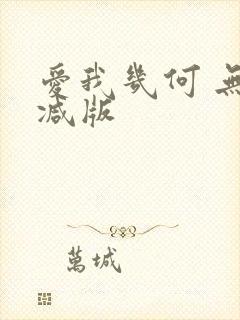 愛我幾何 無
減版
萬城